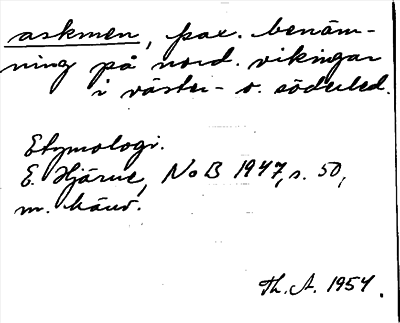 askmen, pax. benäm-
ning på nord. vikingar
i väster- o. söderled.
Etymologi.
E. Hjärne, NoB 1947, s. 50,
m. hänv.
Th. A. 1954.